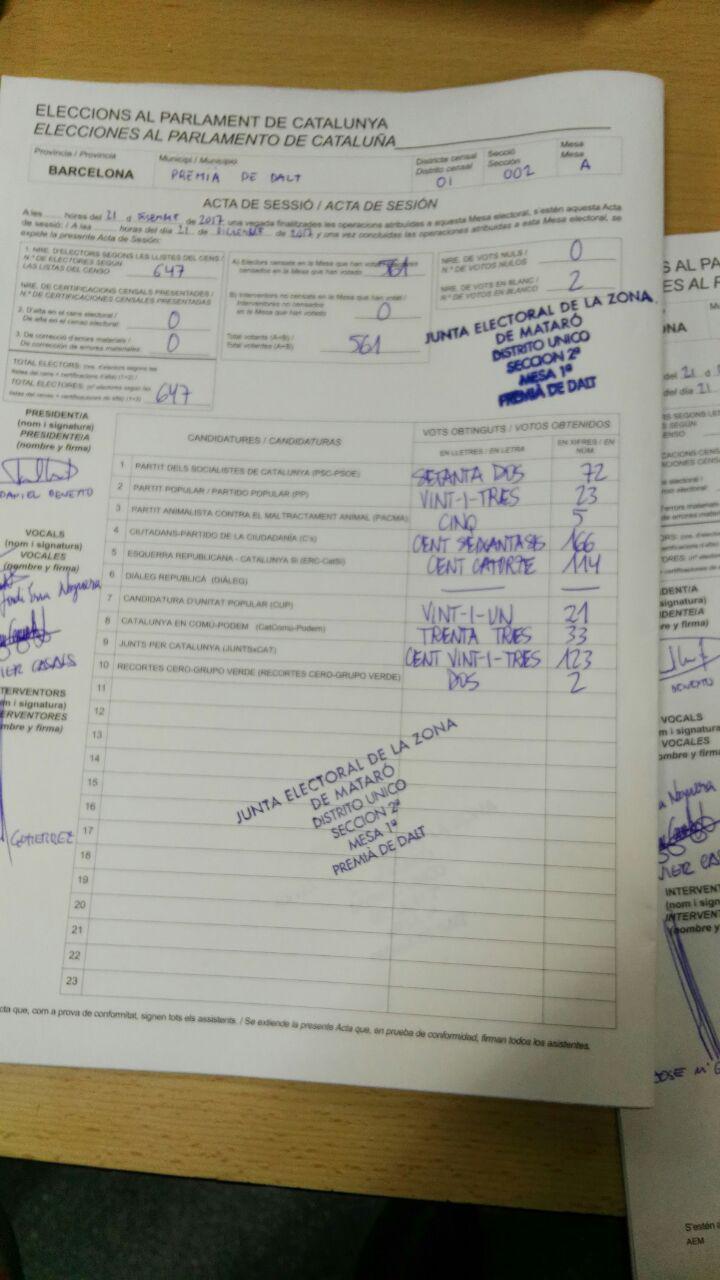 ELECCIONS AL PARLAMENT DE CATALUNYA
ELECCIONES AL PARLAMENTO DE CATALUÑA
Província / Provincia
BARCELONA
Municipi / Municipio
PREMIÀ DE DALT
Districte censal
Distrito censal
01
Secció
Sección
002
Mesa
Mesa
A
ACTA DE SESSIÓ / ACTA DE SESIÓN
A les ...... hores del 21 d de 2017 una vegada finalitzades les operacions atribuïdes a aquesta Mesa electoral, s'estén aquesta Acta
de sessió: / A las ...... horas del día 21 de de 2017 y una vez concluidas las operaciones atribuidas a esta Mesa electoral, se
expide la presente Acta de Sesión:
1. NRE. D'ELECTORS SEGONS LES LLISTES DEL CENS /
N.º DE ELECTORES SEGÚN
LAS LISTAS DEL CENSO
647
NRE. DE CERTIFICACIONS CENSALS PRESENTADES /
N.º DE CERTIFICACIONES CENSALES PRESENTADAS
2. D'alta en el cens electoral /
De alta en el censo electoral:
0
3. De correcció d'errors materials /
De corrección de errores materiales:
0
TOTAL ELECTORS:
TOTAL ELECTORES:
647
A) Electors censats en la Mesa que han votat
censados en la Mesa que han votado
561
B) Interventors no censats en la Mesa que han votat /
Interventores no censados
en la Mesa que han votado
0
Total votants (A+B) /
Total votantes (A+B):
561
NRE. DE VOTS NULS /
N.º DE VOTOS NULOS
0
NRE. DE VOTS EN BLANC /
N.º DE VOTOS EN BLANCO
2
JUNTA ELECTORAL DE LA ZONA
DE MATARÓ
DISTRITO UNICO
SECCION 2ª
MESA 1ª
PREMIÀ DE DALT
PRESIDENT/A
(nom i signatura)
PRESIDENTE/A
(nombre y firma)
DANIEL
VOCALS
(nom i signatura)
VOCALES
(nombre y firma)
CASALS
GUTIERREZ
CANDIDATURES / CANDIDATURAS
VOTS OBTINGUTS / VOTOS OBTENIDOS
EN LLETRES / EN LETRA
EN XIFRES / EN NÚM.
1 PARTIT DELS SOCIALISTES DE CATALUNYA (PSC-PSOE) SETANTA DOS 72
2 PARTIT POPULAR / PARTIDO POPULAR (PP) VINT-I-TRES 23
3 PARTIT ANIMALISTA CONTRA EL MALTRACTAMENT ANIMAL (PACMA) CINQ 5
4 CIUTADANS-PARTIDO DE LA CIUDADANÍA (C's) CENT SEIXANTASIS 166
5 ESQUERRA REPUBLICANA - CATALUNYA SÍ (ERC-CatSí) CENT CATORZE 114
6 DIÀLEG REPUBLICÀ (DIÀLEG)
7 CANDIDATURA D'UNITAT POPULAR (CUP) VINT-I-UN 21
8 CATALUNYA EN COMÚ-PODEM (CatComú-Podem) TRENTA TRES 33
9 JUNTS PER CATALUNYA (JUNTSxCAT) CENT VINT-I-TRES 123
10 RECORTES CERO-GRUPO VERDE (RECORTES CERO-GRUPO VERDE) DOS 2
11
12
13
14
15
16
17
18
19
20
21
22
23
JUNTA ELECTORAL DE LA ZONA
DE MATARÓ
DISTRITO UNICO
SECCION 2ª
MESA 1ª
PREMIÀ DE DALT
cta que, com a prova de conformitat, signen tots els assistents. / Se extiende la presente Acta que, en prueba de conformidad, firman todos los asistentes.
VOCALS
VOCALES
INTERVENT
S'estén
AEM